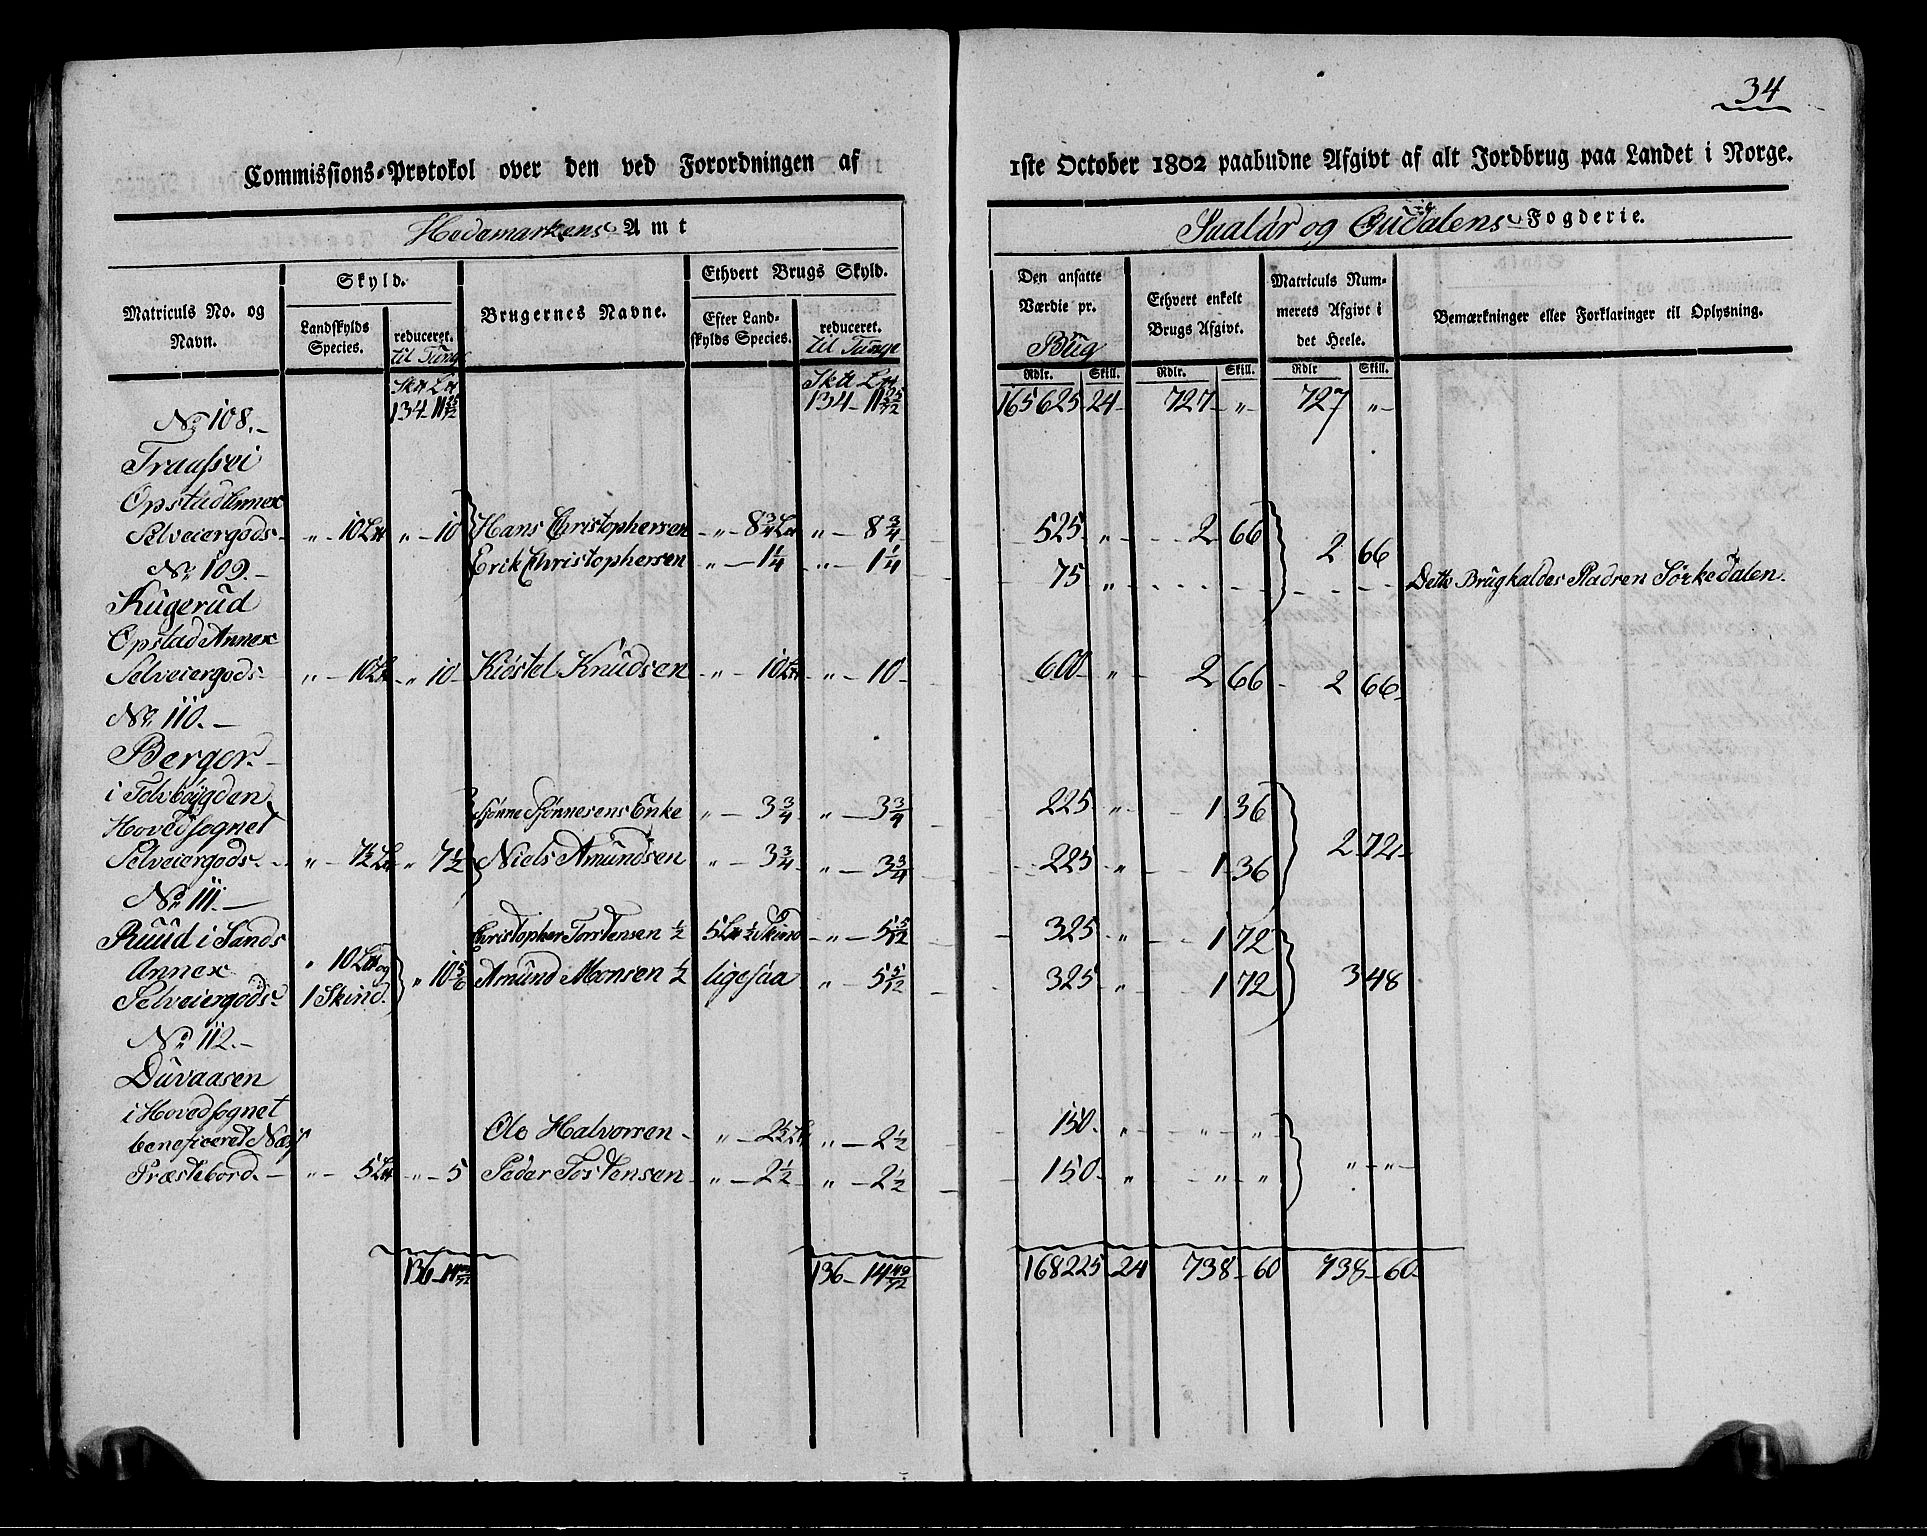 34
Commissions-Protokol over den ved Forordningen af 1ste October 1802 paabudne Afgivt af alt Jordbrug paa Landet i Norge.
Hedemarkens Amt
Fogderie.
Matriculs No. og Navn.
Skyld.
Landskylds Species.
reduceret. til Tunge
Brugernes Navne.
Ethvert Brugs Skyld.
Efter Landskylds Species.
reduceret. til Tunge
Den ansatte Værdie pr. Brug
Ethvert enkelt Brugs Afgivt.
Matriculs Nummerets Afgivt i det Heele.
Bemærkninger eller Forklaringer til Oplysning.
Rdlr. Skill. Rdlr. Skill. Rdlr Skill.
134 - 11 25/72 134 - 11 25/72 165625 - 24 - 727 - „ - 727 „
No 108.
Opstad Annex
Selveiergods - „ - 10 „ - 10 Hans Christophersen - „ - 8 3/4 „ - 8 3/4 525 - „ 2 66 2 66
Erik Christophersen „ - 1 1/4 „ - 1 1/4 75 „
Dette Brug kaldes
No 109.
Kugerud
Opstad Annex
Selveiergods „ - 10 „ 10 - Kiøstel Knudsen - „ - 10 „ - 10 600 - „ 2 66 2 66
No 110.
Berger
i Tolvbøygden
Hovedsognet
Selveiergods „ - 7 1/2 „ 7 1/2
Enke „ - 3 3/4 „ - 3 3/4 225 „ 1 36
Niels Amundsen „ - 3 3/4 „ - 3 3/4 225 „ 1 36 2 72
No 111.
Ruud i Sands
Annex
Selveiergods „ 10 og 1 Skind „ 10 5/6
Christopher Torstensen 1/2 5 1/2 Skind „ - 5 5/12 325 „ 1 72
Amund Monsen 1/2 ligesaa „ - 5 5/12 325 „ 1 72 3 48
No 112.
Duvaasen
i Hovedsognet
beneficeret
Præstebord. „ - 5 „ - 5
Ole Halvorsen - „ - 2 1/2 „ - 2 1/2 150 „ „ „
Peder Tostensen „ - 2 1/2 „ - 2 1/2 150 „ „ „ „ - „
136 - 14 49/72 136 - 14 49/72 168225 - 24 738 - 60 738 - 60